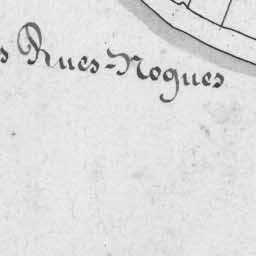 s Rues-Nogues